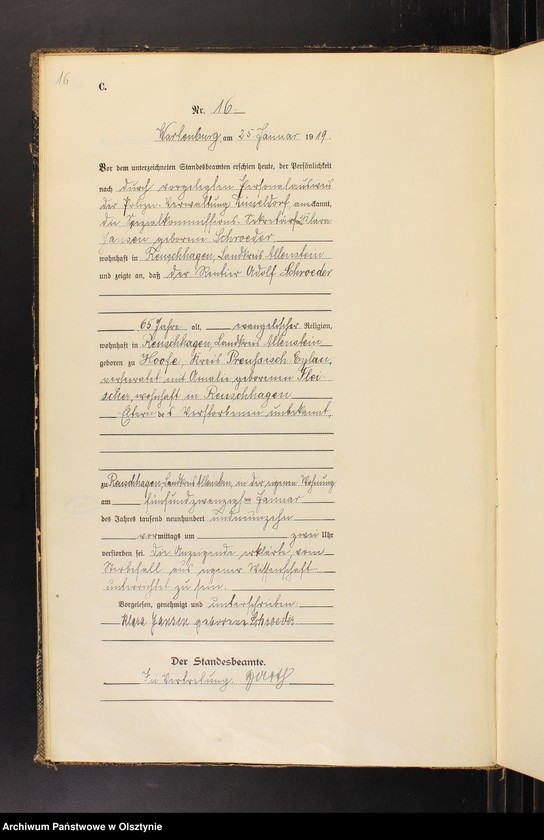 16
C.
Nr. 16
Wartenburg, am 25. Januar 1919.
Vor dem unterzeichneten Standesbeamten erschien heute, der Persönlichkeit
nach durch vorgelegten Personalausweis
der Polizei-Verwaltung Düsseldorf anerkannt,
die Spezialkommissions-Sekretärfrau Klara
Jansen geborene Schroeder
wohnhaft in Reuschhagen, Landkreis Allenstein
und zeigte an, daß der Rentier Adolf Schroeder
65 Jahre alt, evangelischer Religion,
wohnhaft in Reuschhagen, Landkreis Allenstein
geboren zu Hoofe, Kreis Preußisch Eylau,
verheiratet mit Amalie geborenen Flei-
scher, wohnhaft in Reuschhagen
Eltern des Verstorbenen unbekannt,
zu Reuschhagen, Landkreis Allenstein, in der eigenen Wohnung
am fünfundzwanzigsten Januar
des Jahres tausend neunhundert undneunzehn
vormittags um zwei Uhr
verstorben sei. Die Anzeigende erklärte, vom
Sterbefall aus eigener Wissenschaft
unterrichtet zu sein.
Vorgelesen, genehmigt und unterschrieben.
Klara Jansen geborene Schroeder
Der Standesbeamte.
In Vertretung.
Archiwum Państwowe w Olsztynie